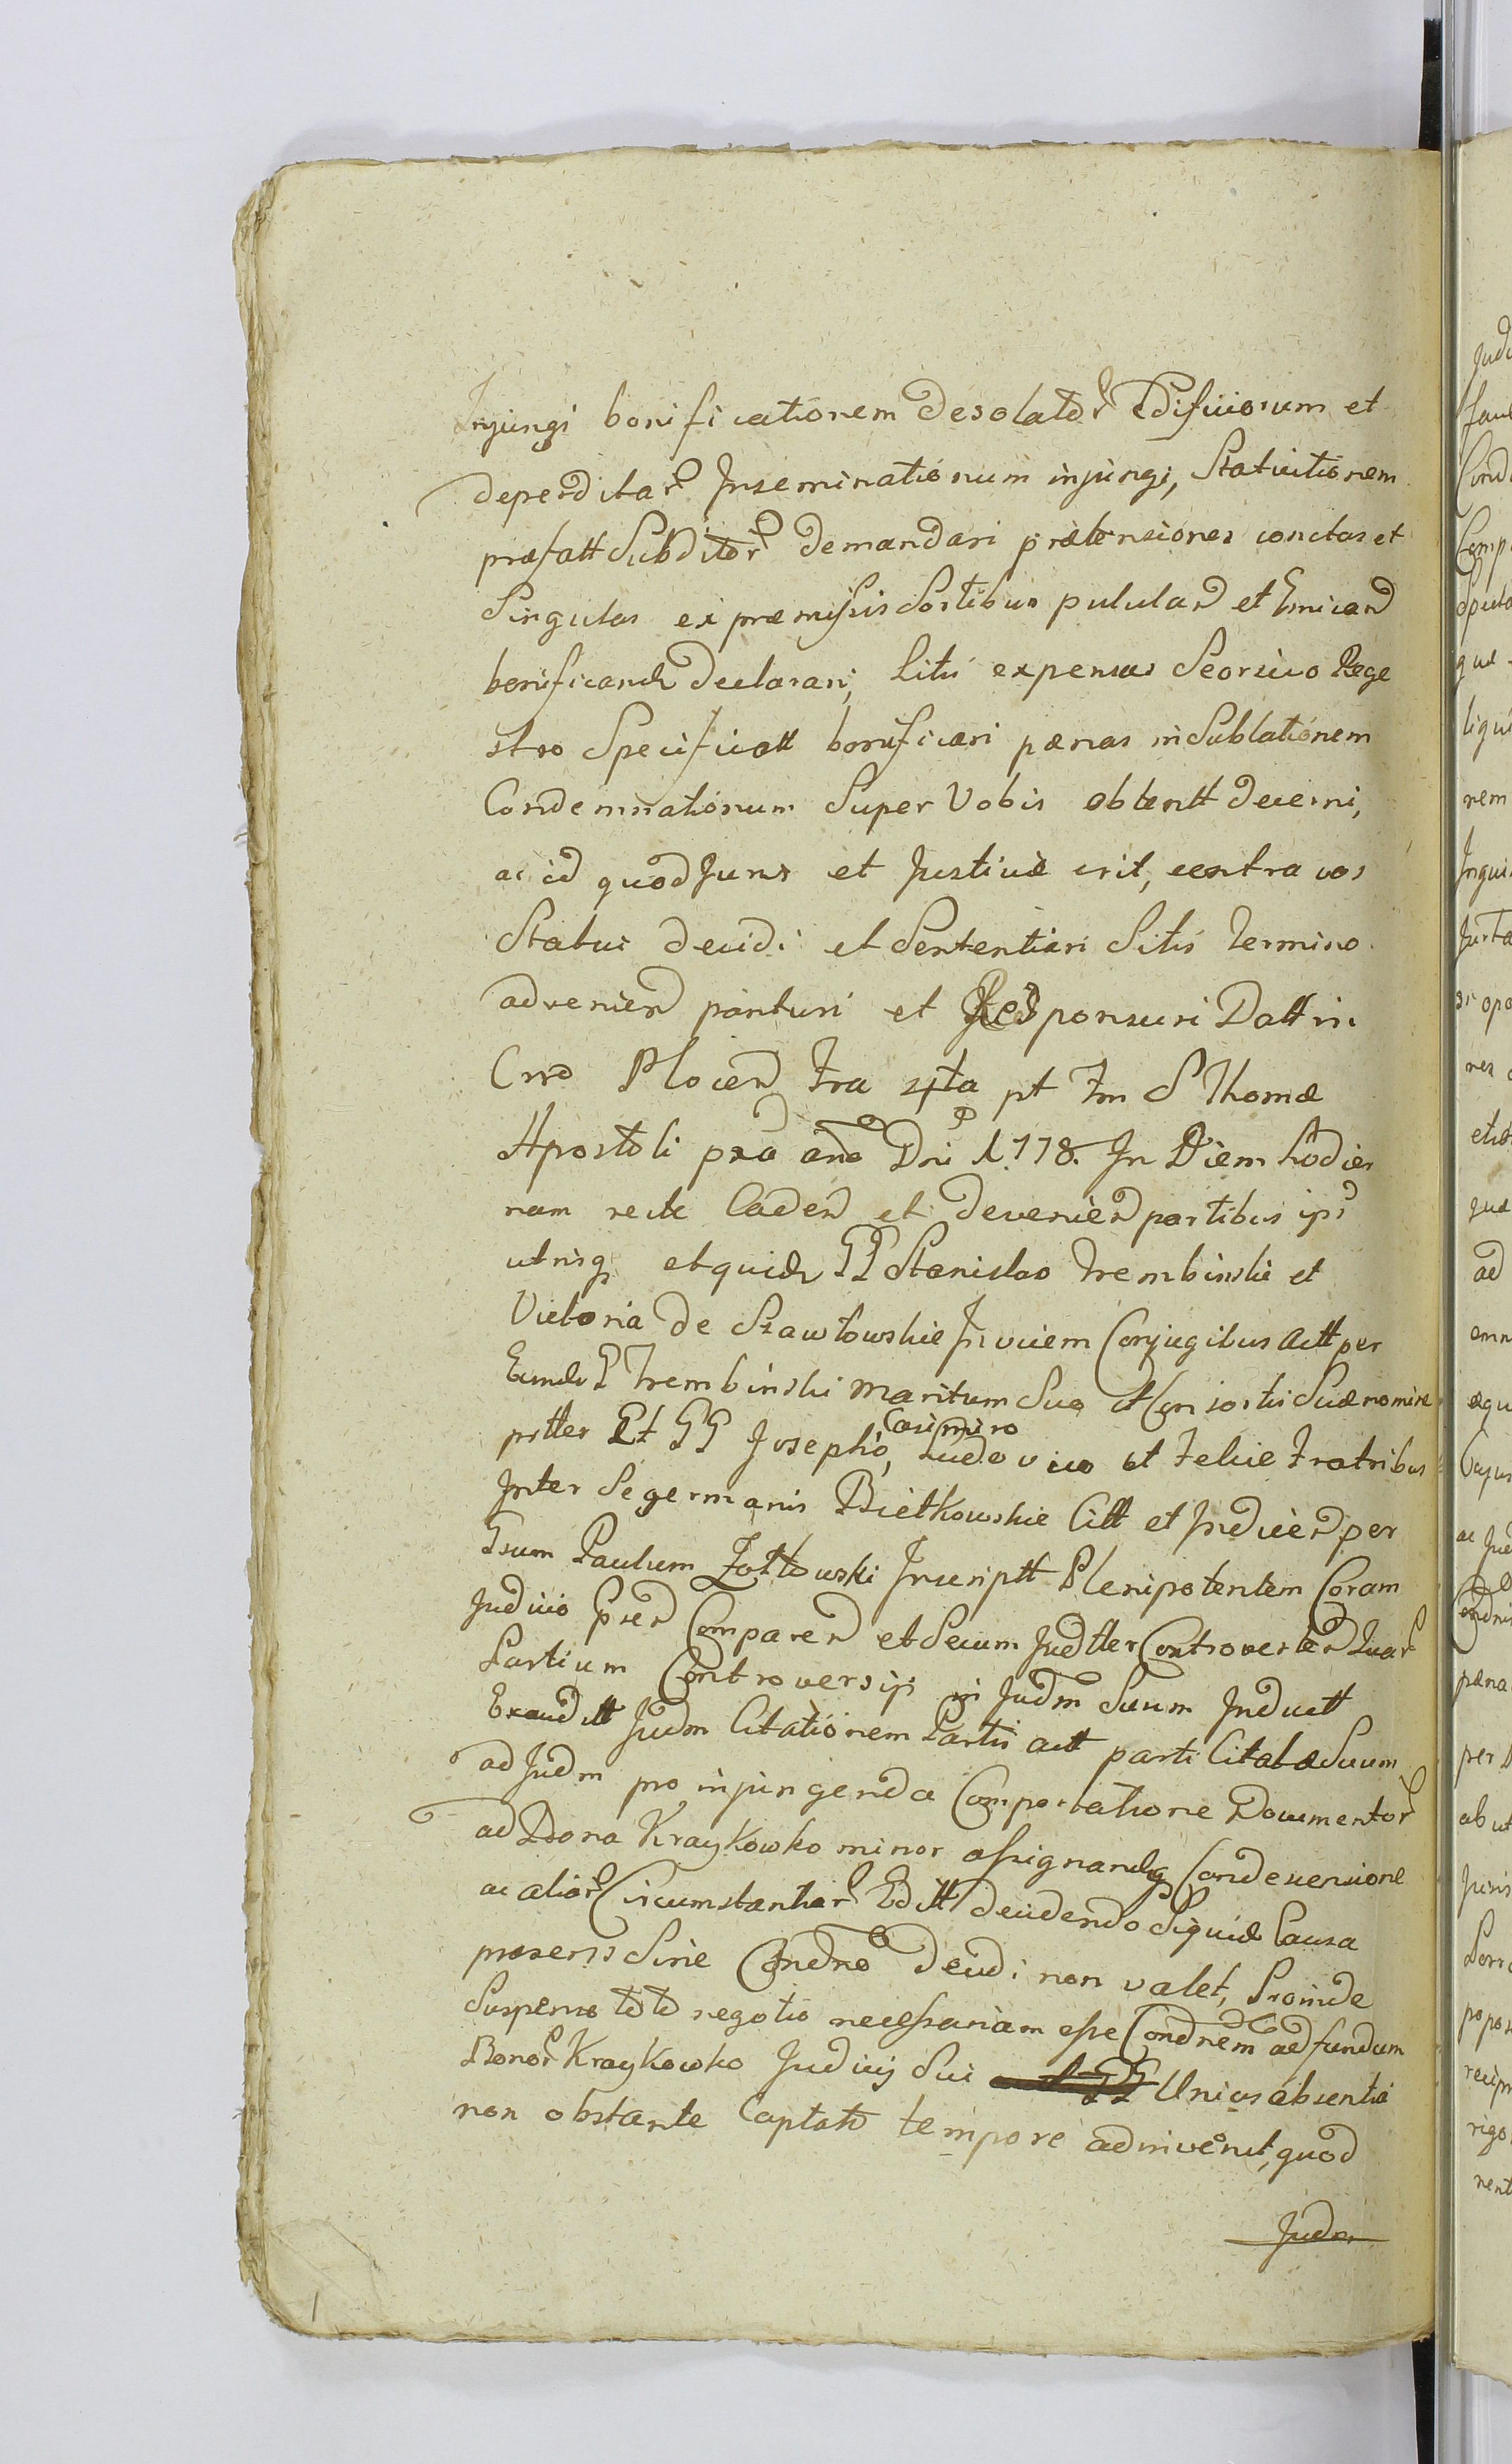 Injungi bonificationem desolator Ædificiorum et
deperditar Inseminationum injungi, Statuitionem
præfatt Subditor demandari prætensiones cunctas et
Singulas ex præmissis Sortibus pululand et Emicand
bonificand declarari, Litis expensas Seorsivo Rege
stro Specificatt bonificari pænas in Sublationem
Condemnationum Super Vobis obtentt decerni,
ac id quod Juris et Justitiæ erit, contra vos
Statui decidi et Sententiari Sitis termino
advenien parituri et Responsuri Datt in
Crro Plocen fra 4ta pt fm S Thomæ
Apostoli pxa ano Dni 1778. In Diem hodier
nam recte Caden et devenien partibus ipsis
utrisq et quid GG Stanislao Trembinski et
Victoria de Szawłowskie Invicem Conjugibus Actt per
Eund G Trembinski maritum Suo et Consortis Suæ nomine
prtter Et GG Josepho, Casimiro Ludovico et Felicie Fratribus
Inter Se germanis Bietkowskie Citt et Indicien per
Gsum Paulum Zołtowski Inscriptt Plenipotentem Coram
Judicio Prsen Comparen et Secum Judtter Controverten Quar
Partium Controversijs in Judm Suum Inductt
Exauditt Judm Citationem Partis actt parti Citatæ Suum
ad Judm pro injungenda Comportatione Documentor
ad Bona Kraykowko minor assignand Condescensione
ac alior Circumstantiar Editt decidendo Siquid Causa
præsens Sine Condne decidi non valet, Proinde
Suspenso toto negotio necessariam esse Condnem ad fundum
Bonor Kraykowko Judicij Sui Unius absentia
non obstante Captato tempore adinvenit, quod
Judm